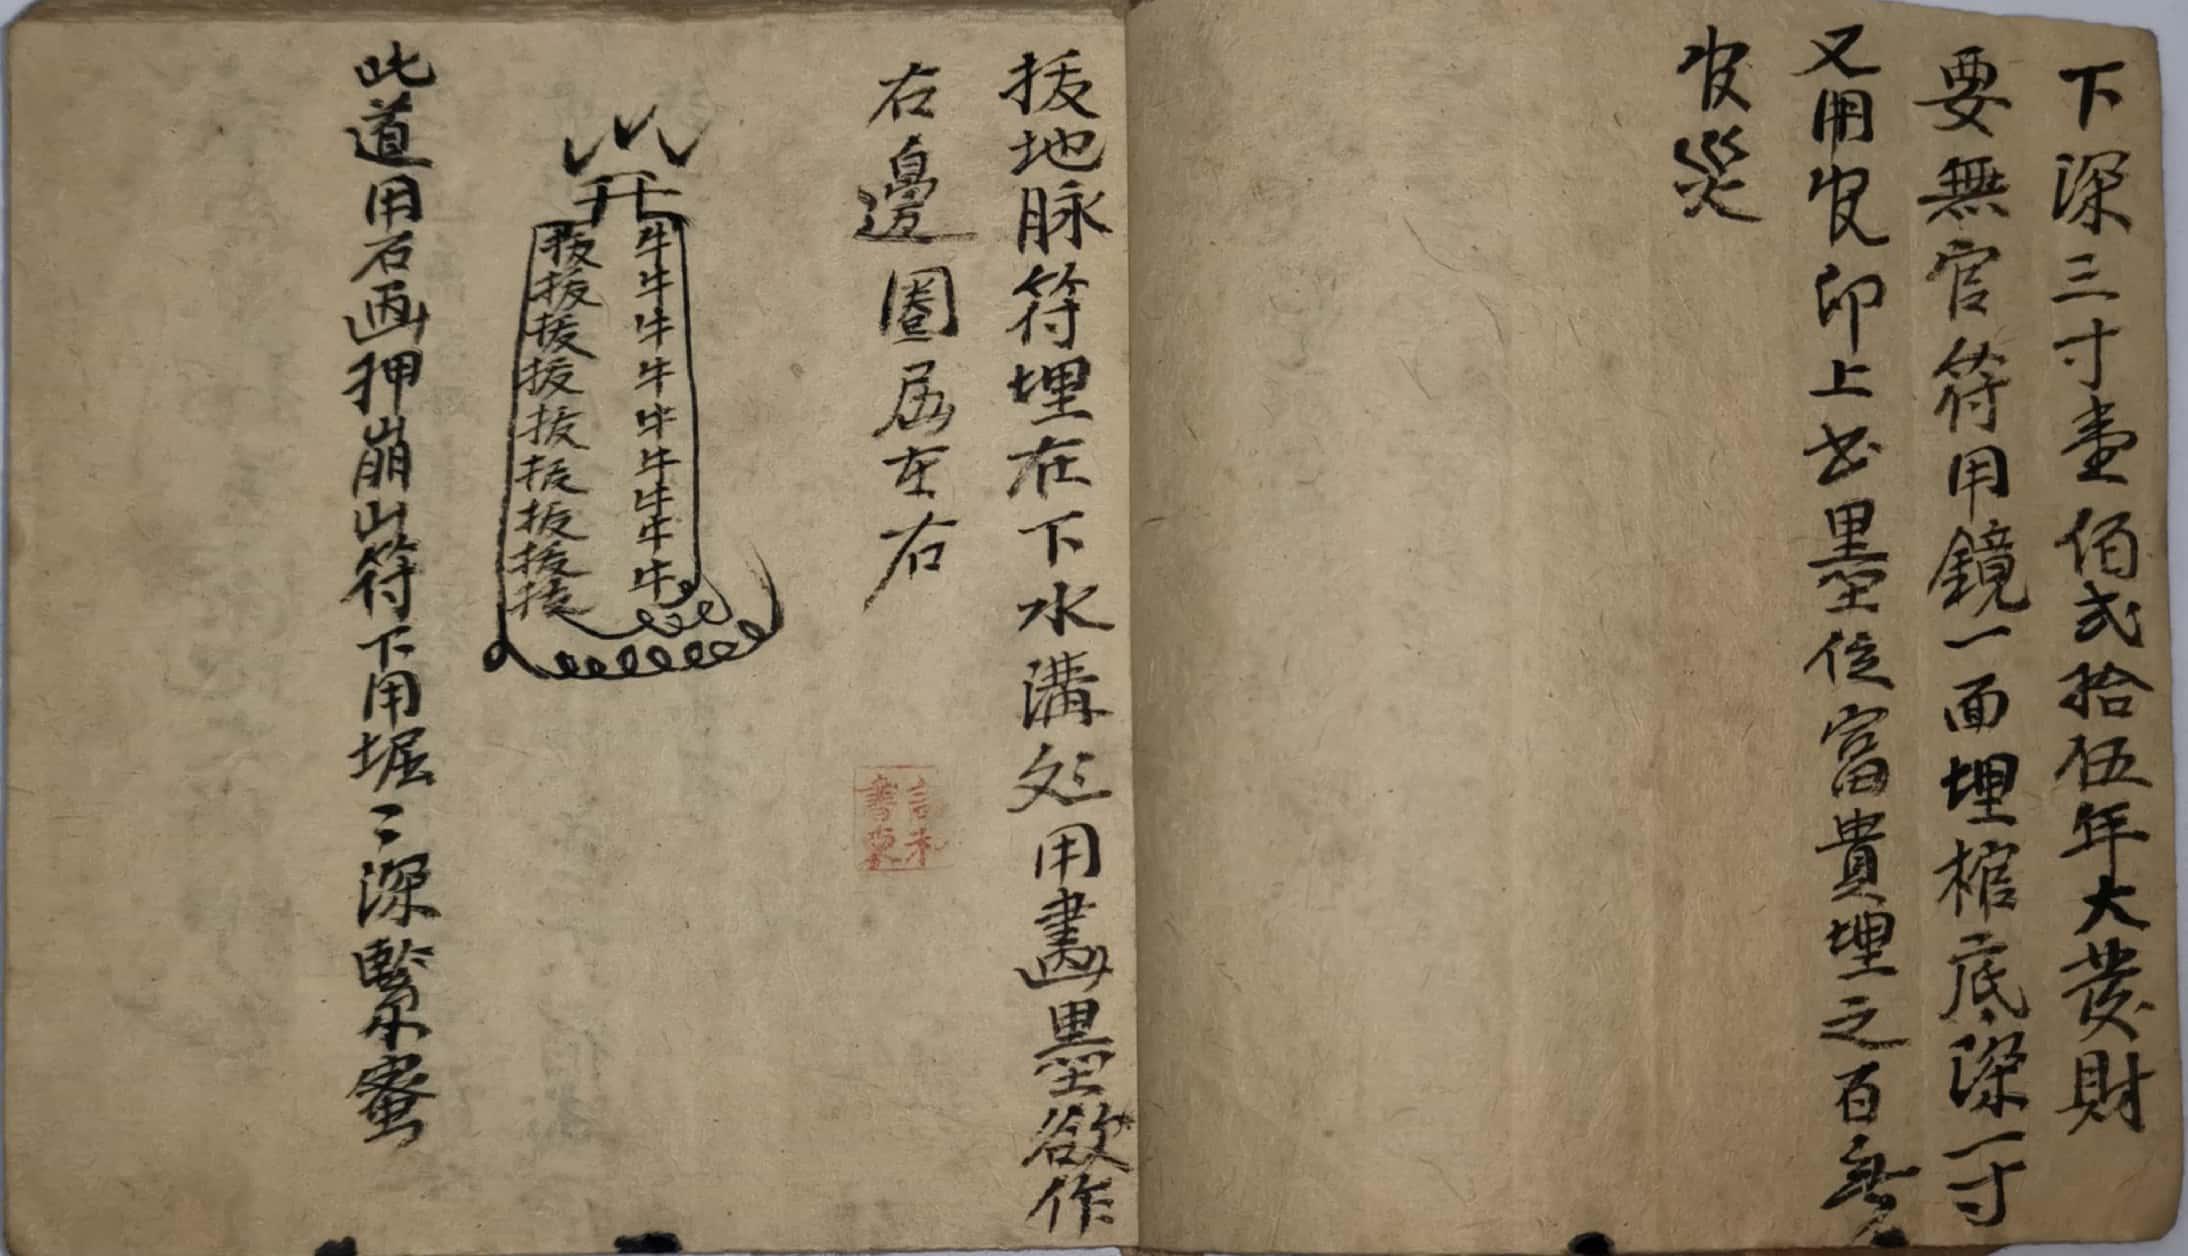 下深三寸壹佰弍拾伍年大發財
要無官符用鏡一面埋棺底深一寸
又用 印上 墨 富貴埋之百無
災
拔地脉符埋在下水溝处用畵墨欲作
右邊圈 右
牛牛牛牛牛牛牛牛牛
拔拔拔拔拔拔拔拔拔
此道用石画押崩山符下用堀〻深緊蜜